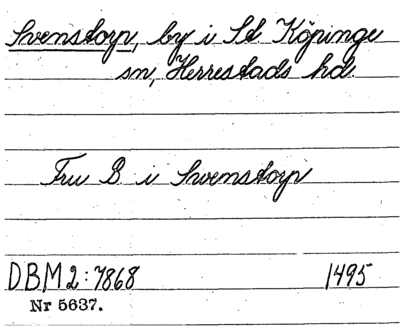 Svenstorp, by i St Köpinge
sn, Herrestads hd.
Fru B. i Swenstorp
DBM2:7868 1495
Nr 5637.